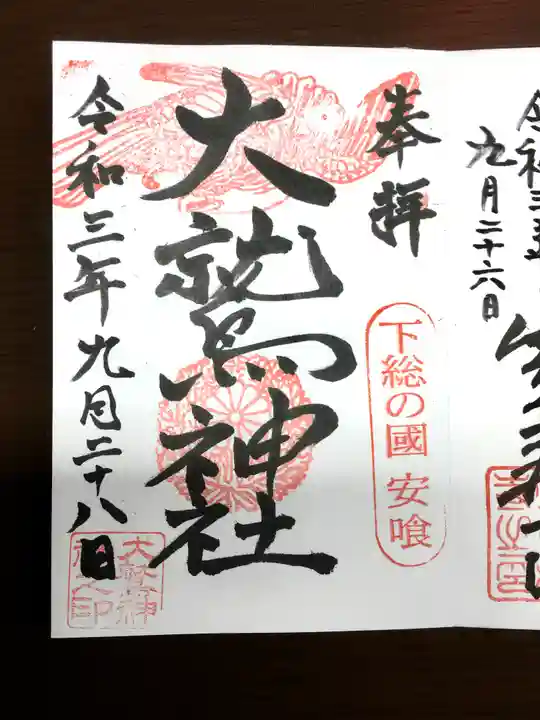 九月二十六日
奉拝
下総の國 安喰
大鷲神社
令和三年九月二十八日
大鷲神
社之印